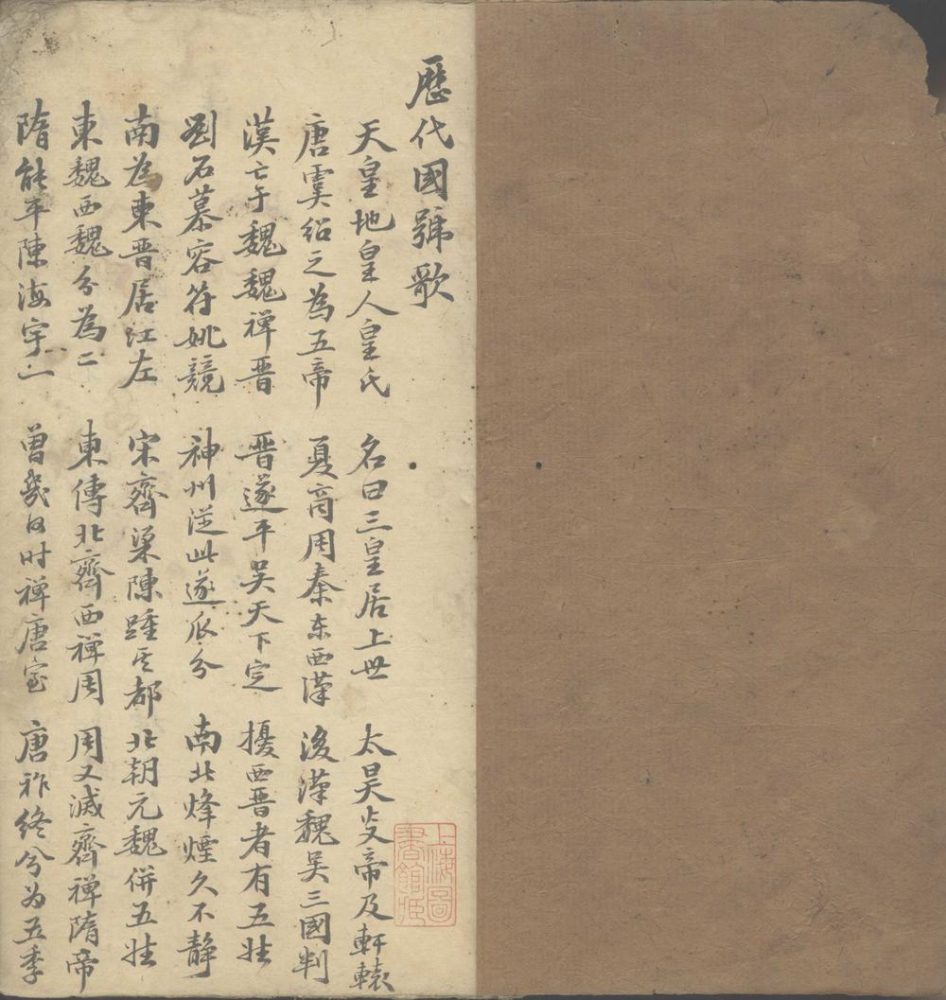 歷代國號歌
天皇地皇人皇氏 名曰三皇居上世 太昊炎帝及軒轅
唐虞紹之為五帝 夏商周秦东西漢 後漢魏吴三國判
漢亡于魏魏禅晋 晋遂平吴天下定 擾西晋者有五姓
劉石慕容符姚競 神州從此遂瓜分 南北烽煙久不静
南為東晋居江左 宋齊梁陳踵其都 北朝元魏併五姓
東魏西魏分為二 東傳北齊西禅周 周又滅齊禅隋帝
隋能平陳海宇一 曾幾何时禅唐室 唐祚終兮为五季
上海圖書館藏